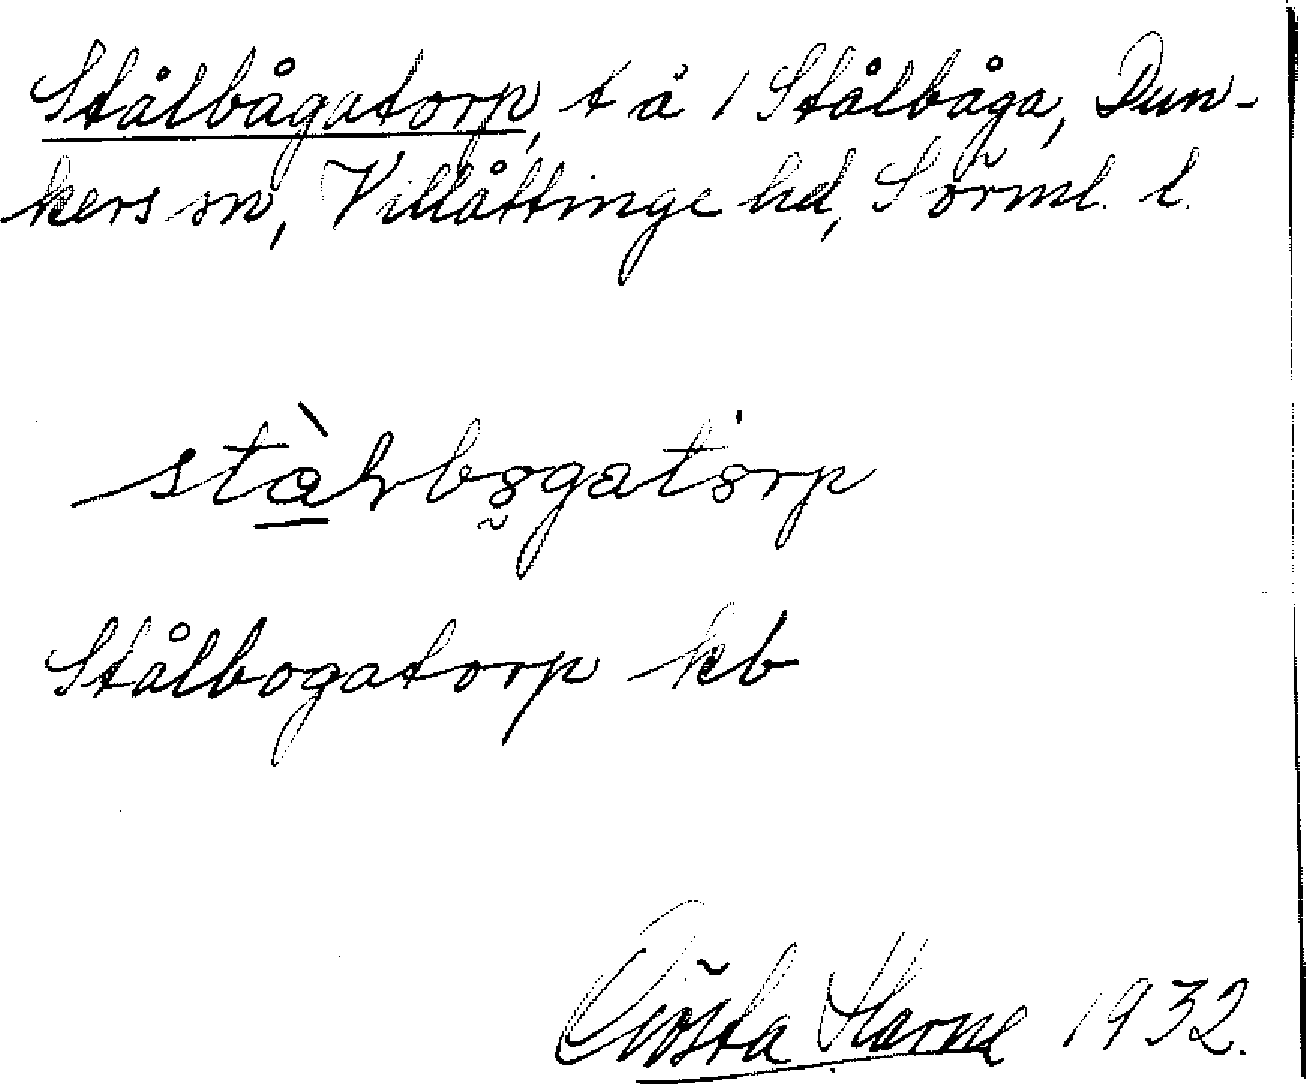 Stålbågatorp, t å 1 Stålbåga, Dun-
kers sn, Villåttinge hd, Sörml. l.
Stålbogatorp kb
Gösta Harne 1932.